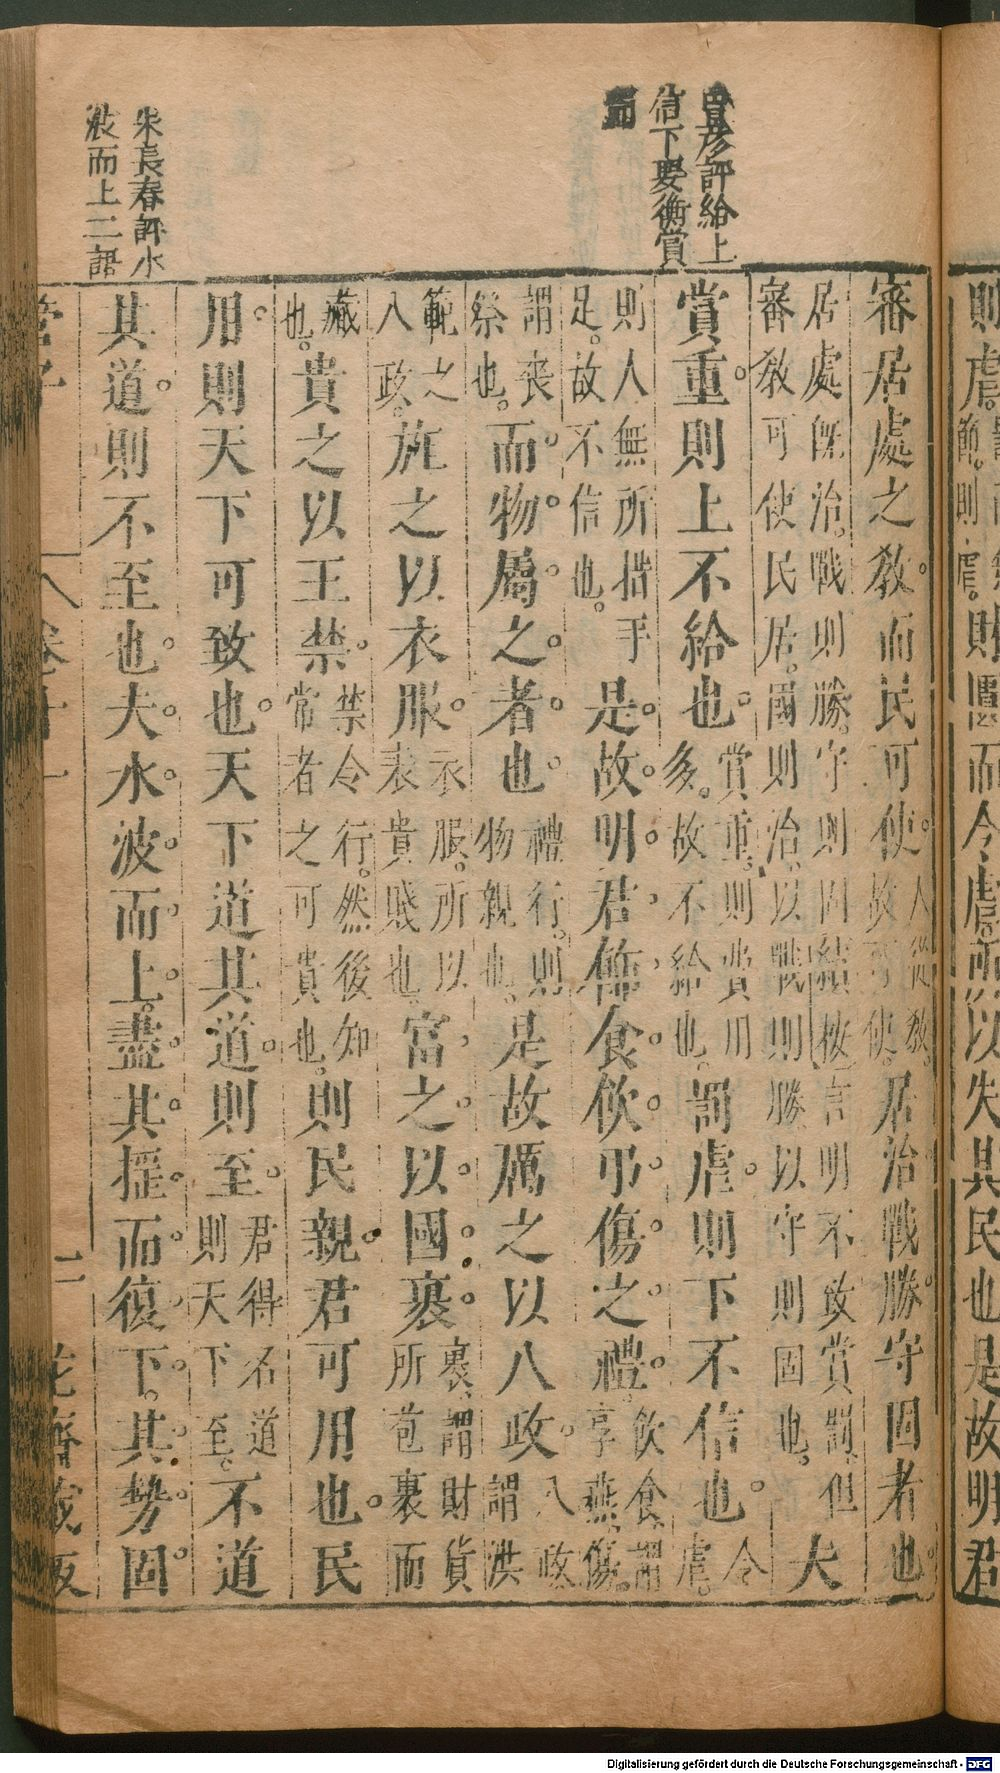 則虐
節則虐
財匱而令虐所以失其民也是故明君
審居處之教而民可使
人從教故可使
居治戰勝守固者也
居處既治戰則勝守則固結
審教可使民居國則治以戰則勝以守則固也
言明不政賞罰但
夫
賞重則上不給也
賞重則費用
多故不給也
罰虐則下不信也
令虐
則人無所措手
足故不信也
是故明君飾食飲弔傷之禮
飲食謂
享燕傷
謂喪
祭也
而物屬之者也
禮行則
物親也
是故厲之以八政
八政
謂洪
範之
八政
旌之以衣服
衣服所以
表貴賤也
富之以國裹
裹謂財貨
所苞裹而
藏也
貴之以王禁
禁令行然後知
常者之可貴也
則民親君可用也民
用則天下可致也天下道其道則至
君得名道
則天下至
不道
其道則不至也夫水波而上盡其搖而復下其勢固
管子
卷十二
二
花齋藏板
評給上
信下要衡賞
罰
朱長春評水
波而上二語
Digitalisierung gefördert durch die Deutsche Forschungsgemeinschaft - DFG